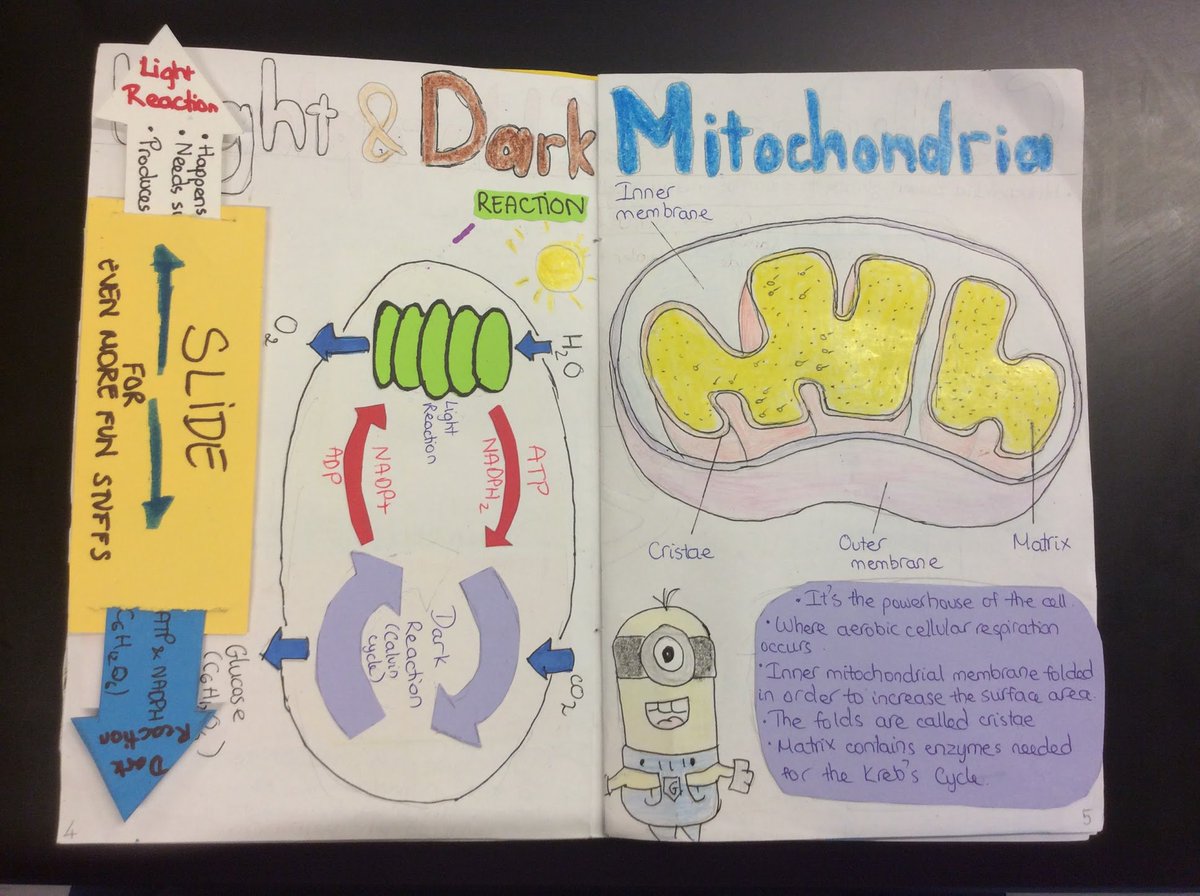 Light & Dark
REACTION
Light
Reaction
• Happens
• Needs
• Produces
SLIDE
FOR
EVEN MORE FUN STUFFS
ATP & NADPH
C6H12O6
Dark
Reaction
O2
H2O
Light
Reaction
NADP+
ADP
ATP
NADPH2
Dark
Reaction
(Calvin
cycle)
Glucose
CO2
4
Mitochondria
Inner
membrane
Cristae
Outer
membrane
Matrix
• It's the powerhouse of the cell.
• Where aerobic cellular respiration
occurs.
• Inner mitochondrial membrane folded
in order to increase the surface area.
• The folds are called cristae
• Matrix contains enzymes needed
for the Kreb's Cycle.
G
5